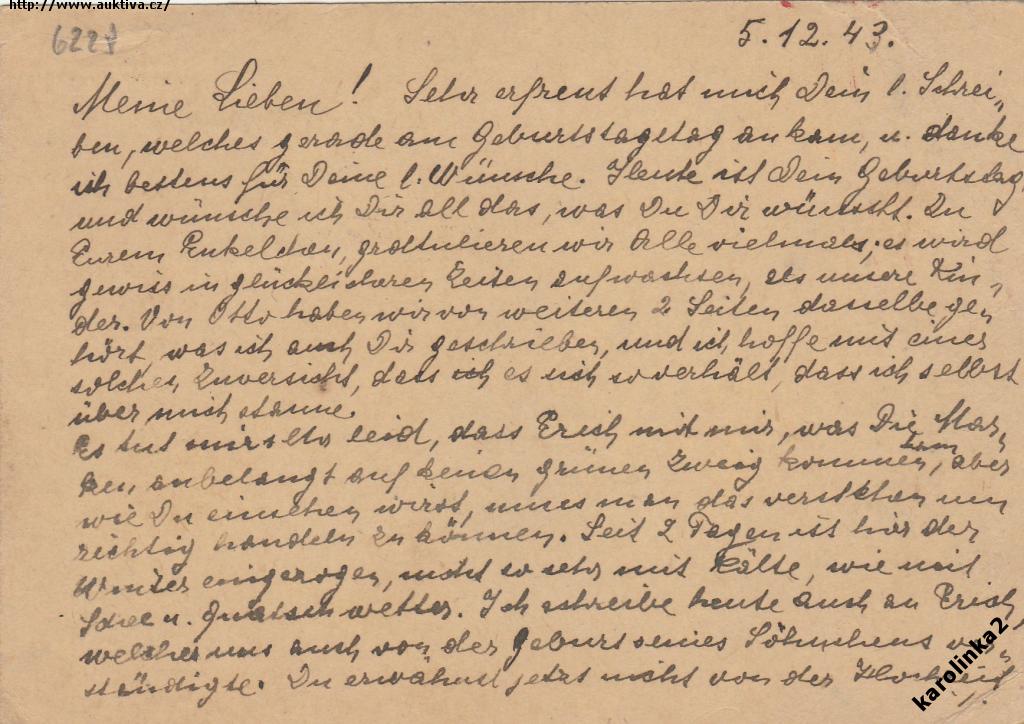 http://www.auktiva.cz/
6227
5.12.43.
Meine Lieben! Sehr erfreut hat mich Dein l. Schrei-
ben, welches gerade am Geburtstagstag ankam, u. danke
ich bestens für Deine l. Wünsche. Heute ist Dein Geburtstag
und wünsche ich Dir all das, was Du Dir wünscht. Zu
Eurem Enkelchen, gratulieren wir Alle vielmals, es wird
gewiss in glücklicheren Zeiten aufwachsen, als unsere Kin-
der. Von Otto haben wir von weiteren 2 Seiten dasselbe gen
hört, was ich auch Dir geschrieben, und ich hoffe mit einer
solchen Zuversicht, dass ich es sich so verhält, dass ich selbst
über mich staune.
Es tut mir leid, dass Erich mit mir, was Die Mar-
ken anbelangt auf keinen grünen Zweig kommen kann, aber
wie Du einsehen wirst, muss man das verstehen um
richtig handeln zu können. Seit 2 Tagen ist hier der
Winter eingezogen, nicht so sehr mit Kälte, wie mit
Schnee u. Quatschwetter. Ich schreibe heute auch an Erich,
welcher uns auch von der Geburt seines Söhnchens ver-
ständigte. Du erwähnst jetzt nicht von der Hochzeit
karolinka2